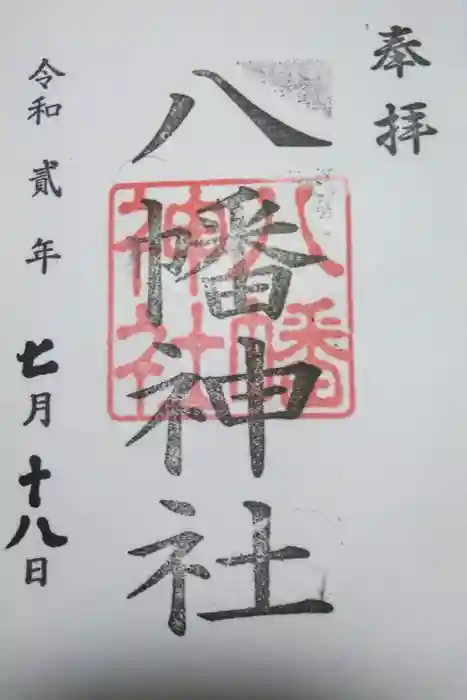 奉拝
八幡神社
八幡神社
令和貳年七月十八日